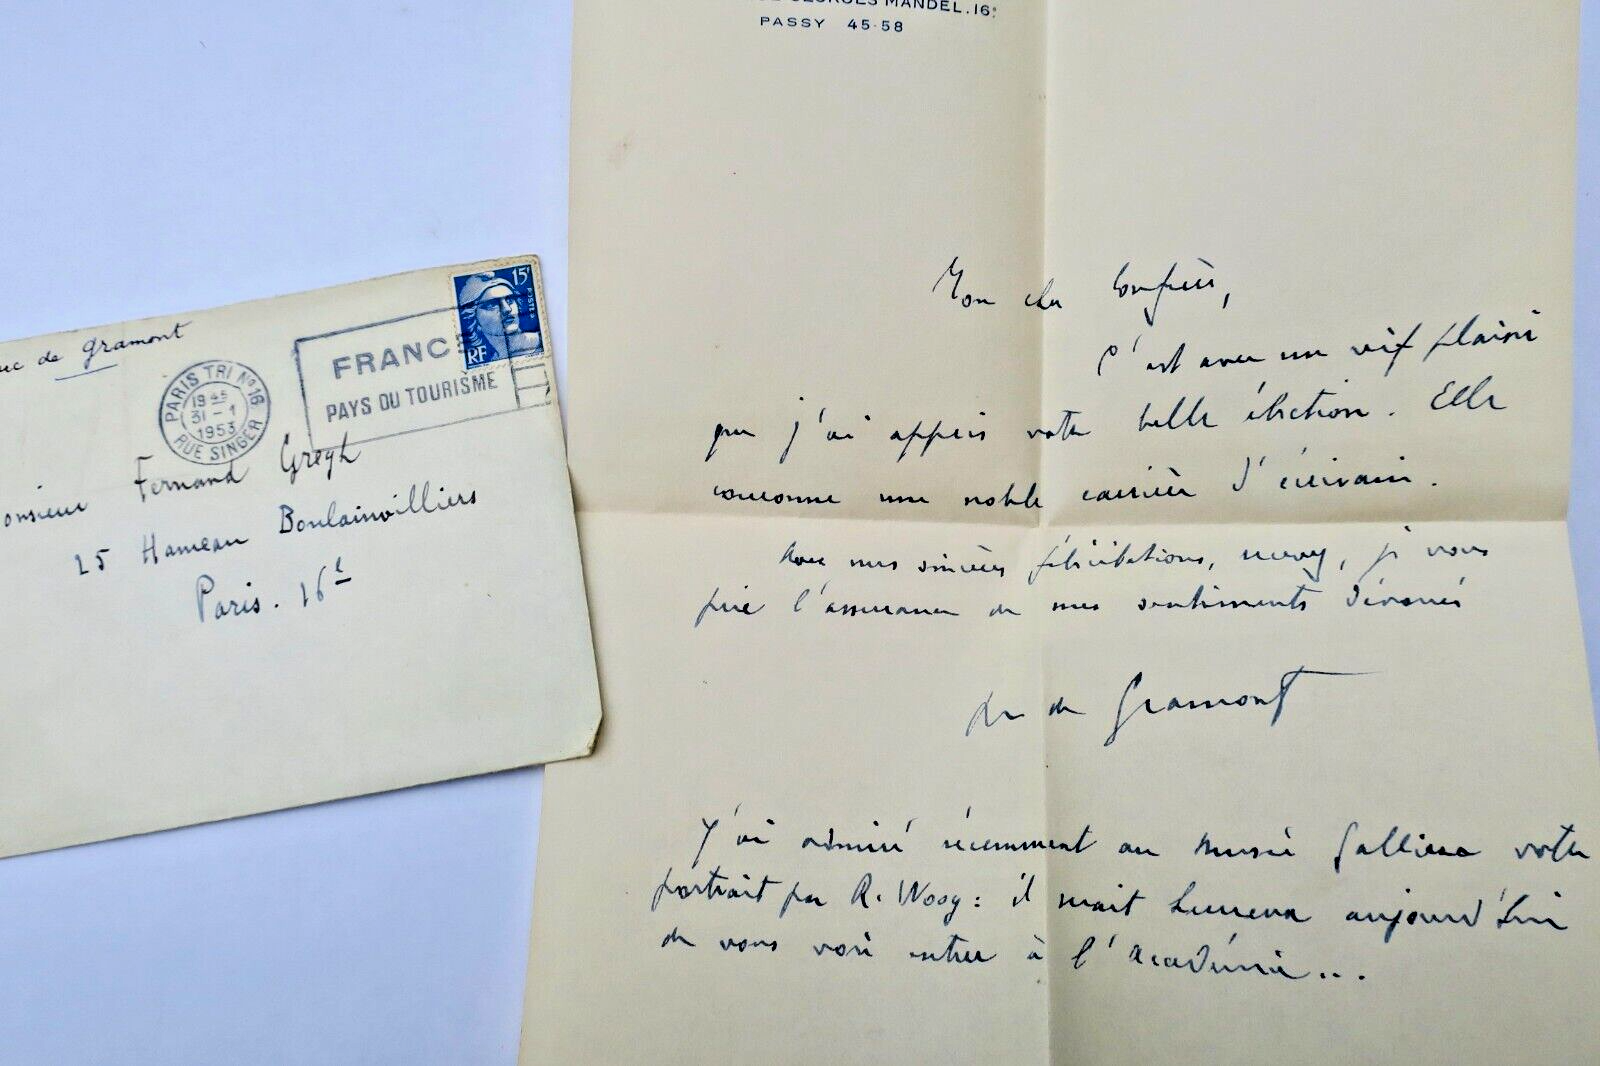 GEORGES MANDEL. 16e
PASSY 45-58
Mon cher Confrère,
C'est avec un vif plaisir
que j'ai appris votre belle élection. Elle
couronne une noble carrière d'écrivain.
Avec mes sincères félicitations, je vous
prie l'assurance de mes sentiments dévoués
duc de Gramont
J'ai admiré récemment au musée Galliera votre
portrait par R. Woog : il serait heureux aujourd'hui
de vous voir entrer à l'Académie...
duc de Gramont
15f
POSTES
RF
FRANCE
PAYS DU TOURISME
PARIS TRI No 16
19 45
31 - 1
1953
RUE SINGER
Monsieur Fernand Gregh
25 Hameau Boulainvilliers
Paris. 16e